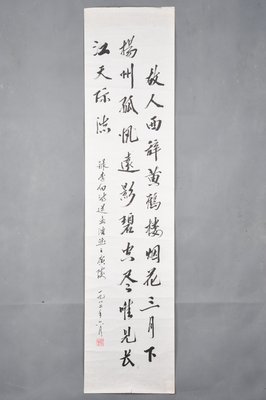 故人西辞黄鹤楼烟花三月下
扬州孤帆远影碧空尽唯见长
江天际流
录李白诗送孟浩然之广陵
一九八二年六月